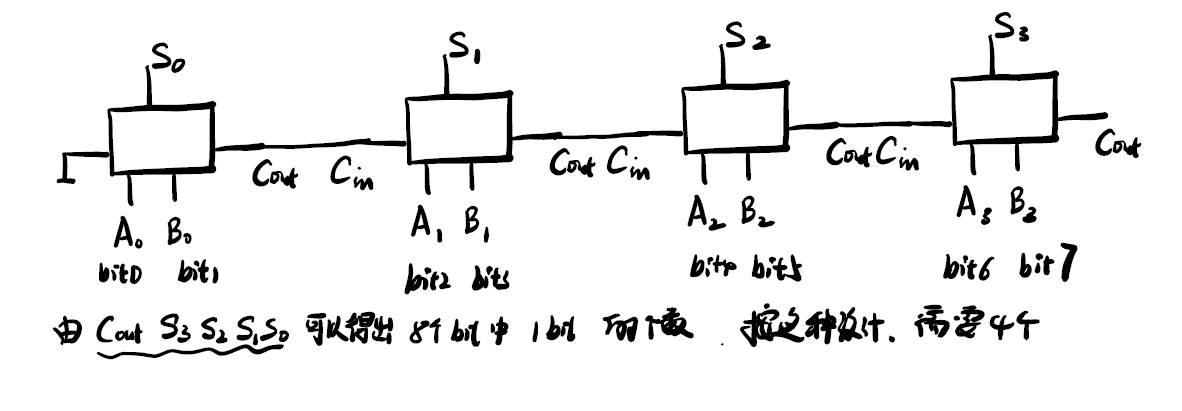 S₀ S₁ S₂ S₃
Cout Cin Cout Cin Cout Cin Cout
A₀ B₀ A₁ B₁ A₂ B₂ A₃ B₃
bit0 bit1 bit2 bit3 bit4 bit5 bit6 bit7
由 Cout S₃ S₂ S₁ S₀ 可以得出 8个bit中 1bit 的个数. 按这种设计. 需要4个